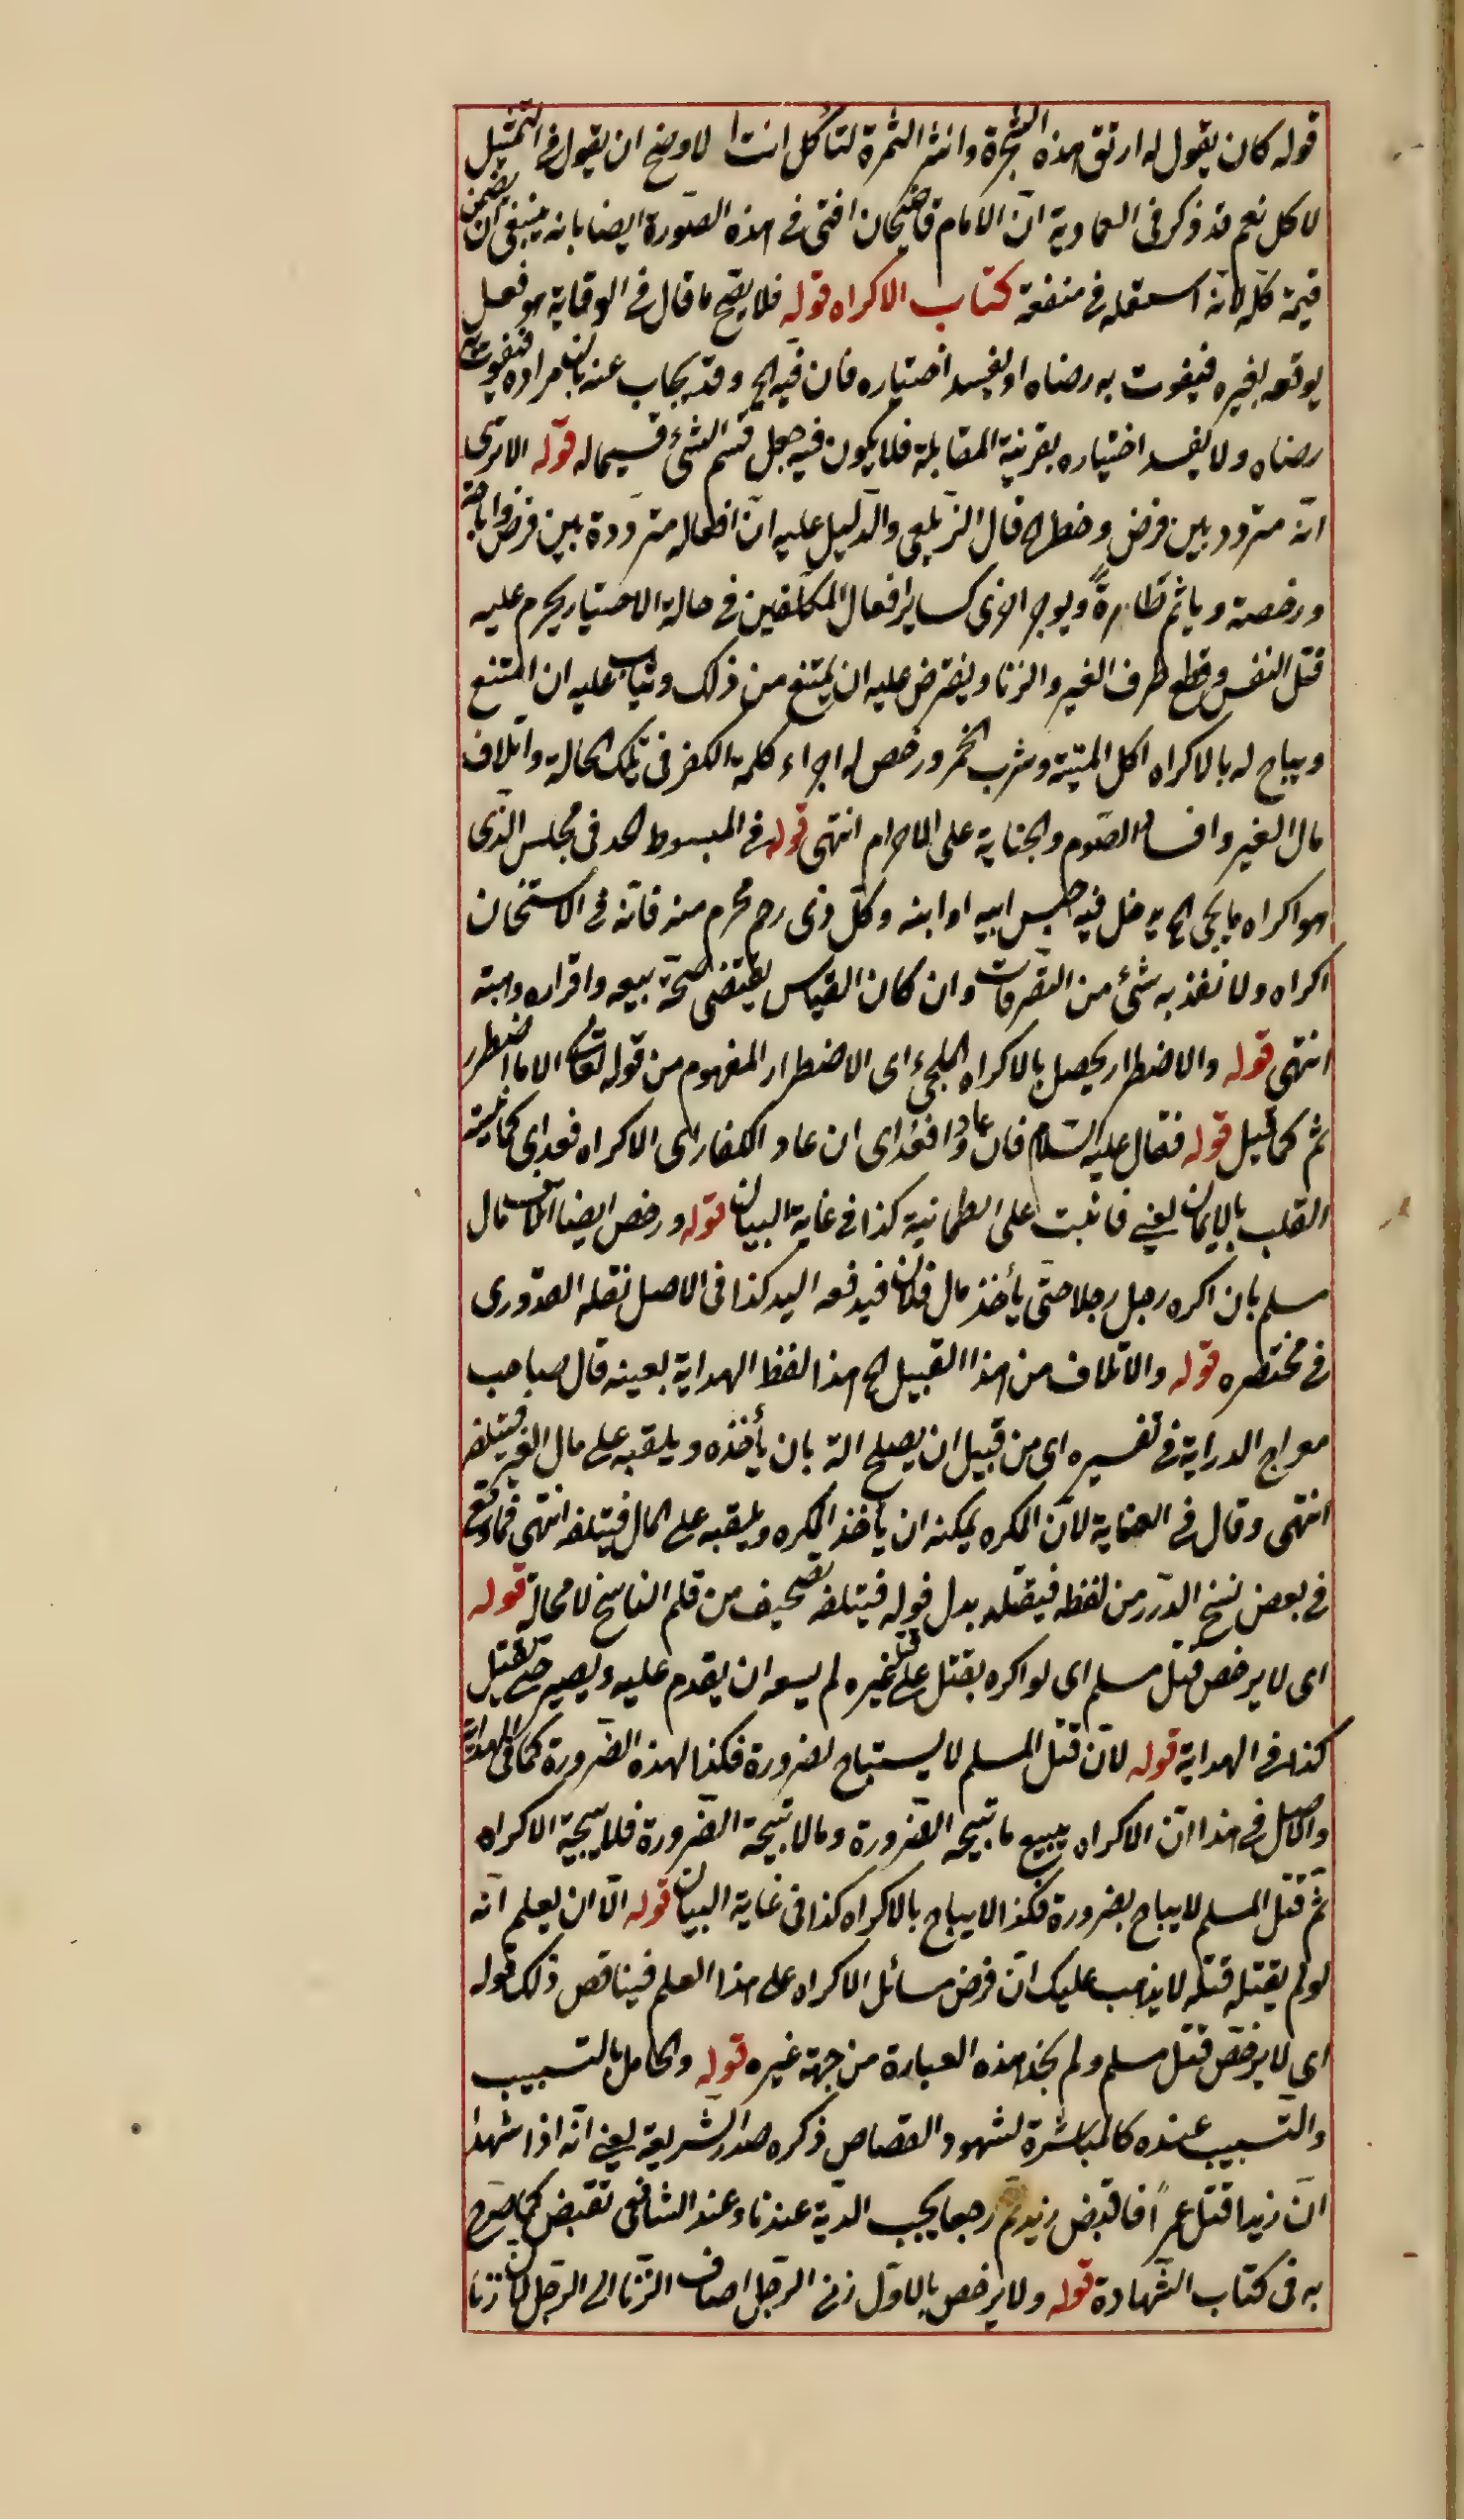 قوله كان يقول له ارتق هذه الشجرة وانثر الثمرة لتأكل انت الاوضح ان يقول في التمثيل
لاكل نعم قد ذكر في العمادية ان الامام قاضيخان افتى في هذه الصورة ايضا بانه ينبغي ان يضمن
قيمة كله لانه استعمله في منفعة كتاب الاكراه قوله فلا يصح ما قال في الوقاية هو فعل
يوقعه بغيره فيفوت به رضاه او يفسد اختياره فان فيه الخ وقد يجاب عنه بان مراده فيفوت به
رضاه ولا يفسد اختياره بقرينة المقابلة فلا يكون فيه جعل قسم الشئ قسيما له قوله الا ترى
انه متردد بين فرض وحظر الخ قال الزيلعي والدليل عليه ان افعاله مترددة بين فرض واباحة
ورخصة وياثم تارة ويوجر اخرى كساير افعال المكلفين في حالة الاختيار يحرم عليه
قتل النفس وقطع طرف الغير والزنا ويفترض عليه ان يمتنع من ذلك ويثاب عليه ان امتنع
ويباح له بالاكراه اكل الميتة وشرب الخمر ورخص له اجراء كلمة الكفر في تلك الحالة واتلاف
مال الغير وافساد الصوم والجناية على الاحرام انتهى قوله في المبسوط الحد في مجلس الذى
هو اكراه ما يجئ الخ يدخل فيه حبس ابيه او ابنه وكل ذى رحم محرم منه فانه في الاستحسان
اكراه ولا نفذ به شئ من التصرفات وان كان القياس يقتضى صحة بيعه واقراره وهبته
انتهى قوله والاضطرار يحصل بالاكراه الملجئ اى الاضطرار المفهوم من قوله تعالى الا ما اضطرر
ثم كما قيل قوله فقال عليه السلام فان عادوا فعد اى ان عاد الكفار اى الاكراه فعد اى كما
القلب بالايمان يعني فاثبت على الطمانية كذا في غاية البيان قوله ورخص ايضا اتلاف مال
مسلم بان اكره رجل رجلا حتى يأخذ مال فلان فيدفعه اليه كذا في الاصل نقله القدورى
في مختصره قوله والاتلاف من هذا القبيل الخ هذا لفظ الهداية بعينه قال صاحب
معراج الدراية في تفسيره اى من قبيل ان يصلح الة بان يأخذه ويلقيه على مال الغير فيتلفه
انتهى وقال في العناية لان المكره يمكنه ان يأخذ المكره ويلقيه على المال فيتلفه انتهى فما وقع
في بعض نسخ الدرر من لفظه فيقتله بدل قوله فيتلفه تصحيف من قلم الناسخ لا محالة قوله
اى لا يرخص قتل مسلم اى لو اكره بقتل على قتل غيره لم يسعه ان يقدم عليه ويصير حتى يقتل
كذا في الهداية قوله لان قتل المسلم لا يستباح لضرورة فكذا لهذه الضرورة كما في الهداية
والاصل في هذا ان الاكراه يبيح ما تبيحه الضرورة وما لا تبيحه الضرورة فلا يبيحه الاكراه
ثم قتل المسلم لا يباح بضرورة فكذا لا يباح بالاكراه كذا في غاية البيان قوله الا ان يعلم انه
لو لم يقتله قتله لا يذهب عليك ان فرض مسائل الاكراه على هذا العلم فيناقض ذلك قوله
اى لا يرخص قتل مسلم ولم نجد هذه العبارة من جهة غيره قوله والحامل بالتسبيب
والتسبيب عنده كالمباشرة لشهود القصاص ذكره صدر الشريعة يعني انه اذا شهدا
ان زيدا قتل عمرًا فاقتص زيد ثم رجعا يجب الدية عندنا وعند الشافعى تقتص كما صرح
به في كتاب الشهادة قوله ولا يرخص بالاول زنى الرجل اضاف الزنا الى الرجل لان زنا